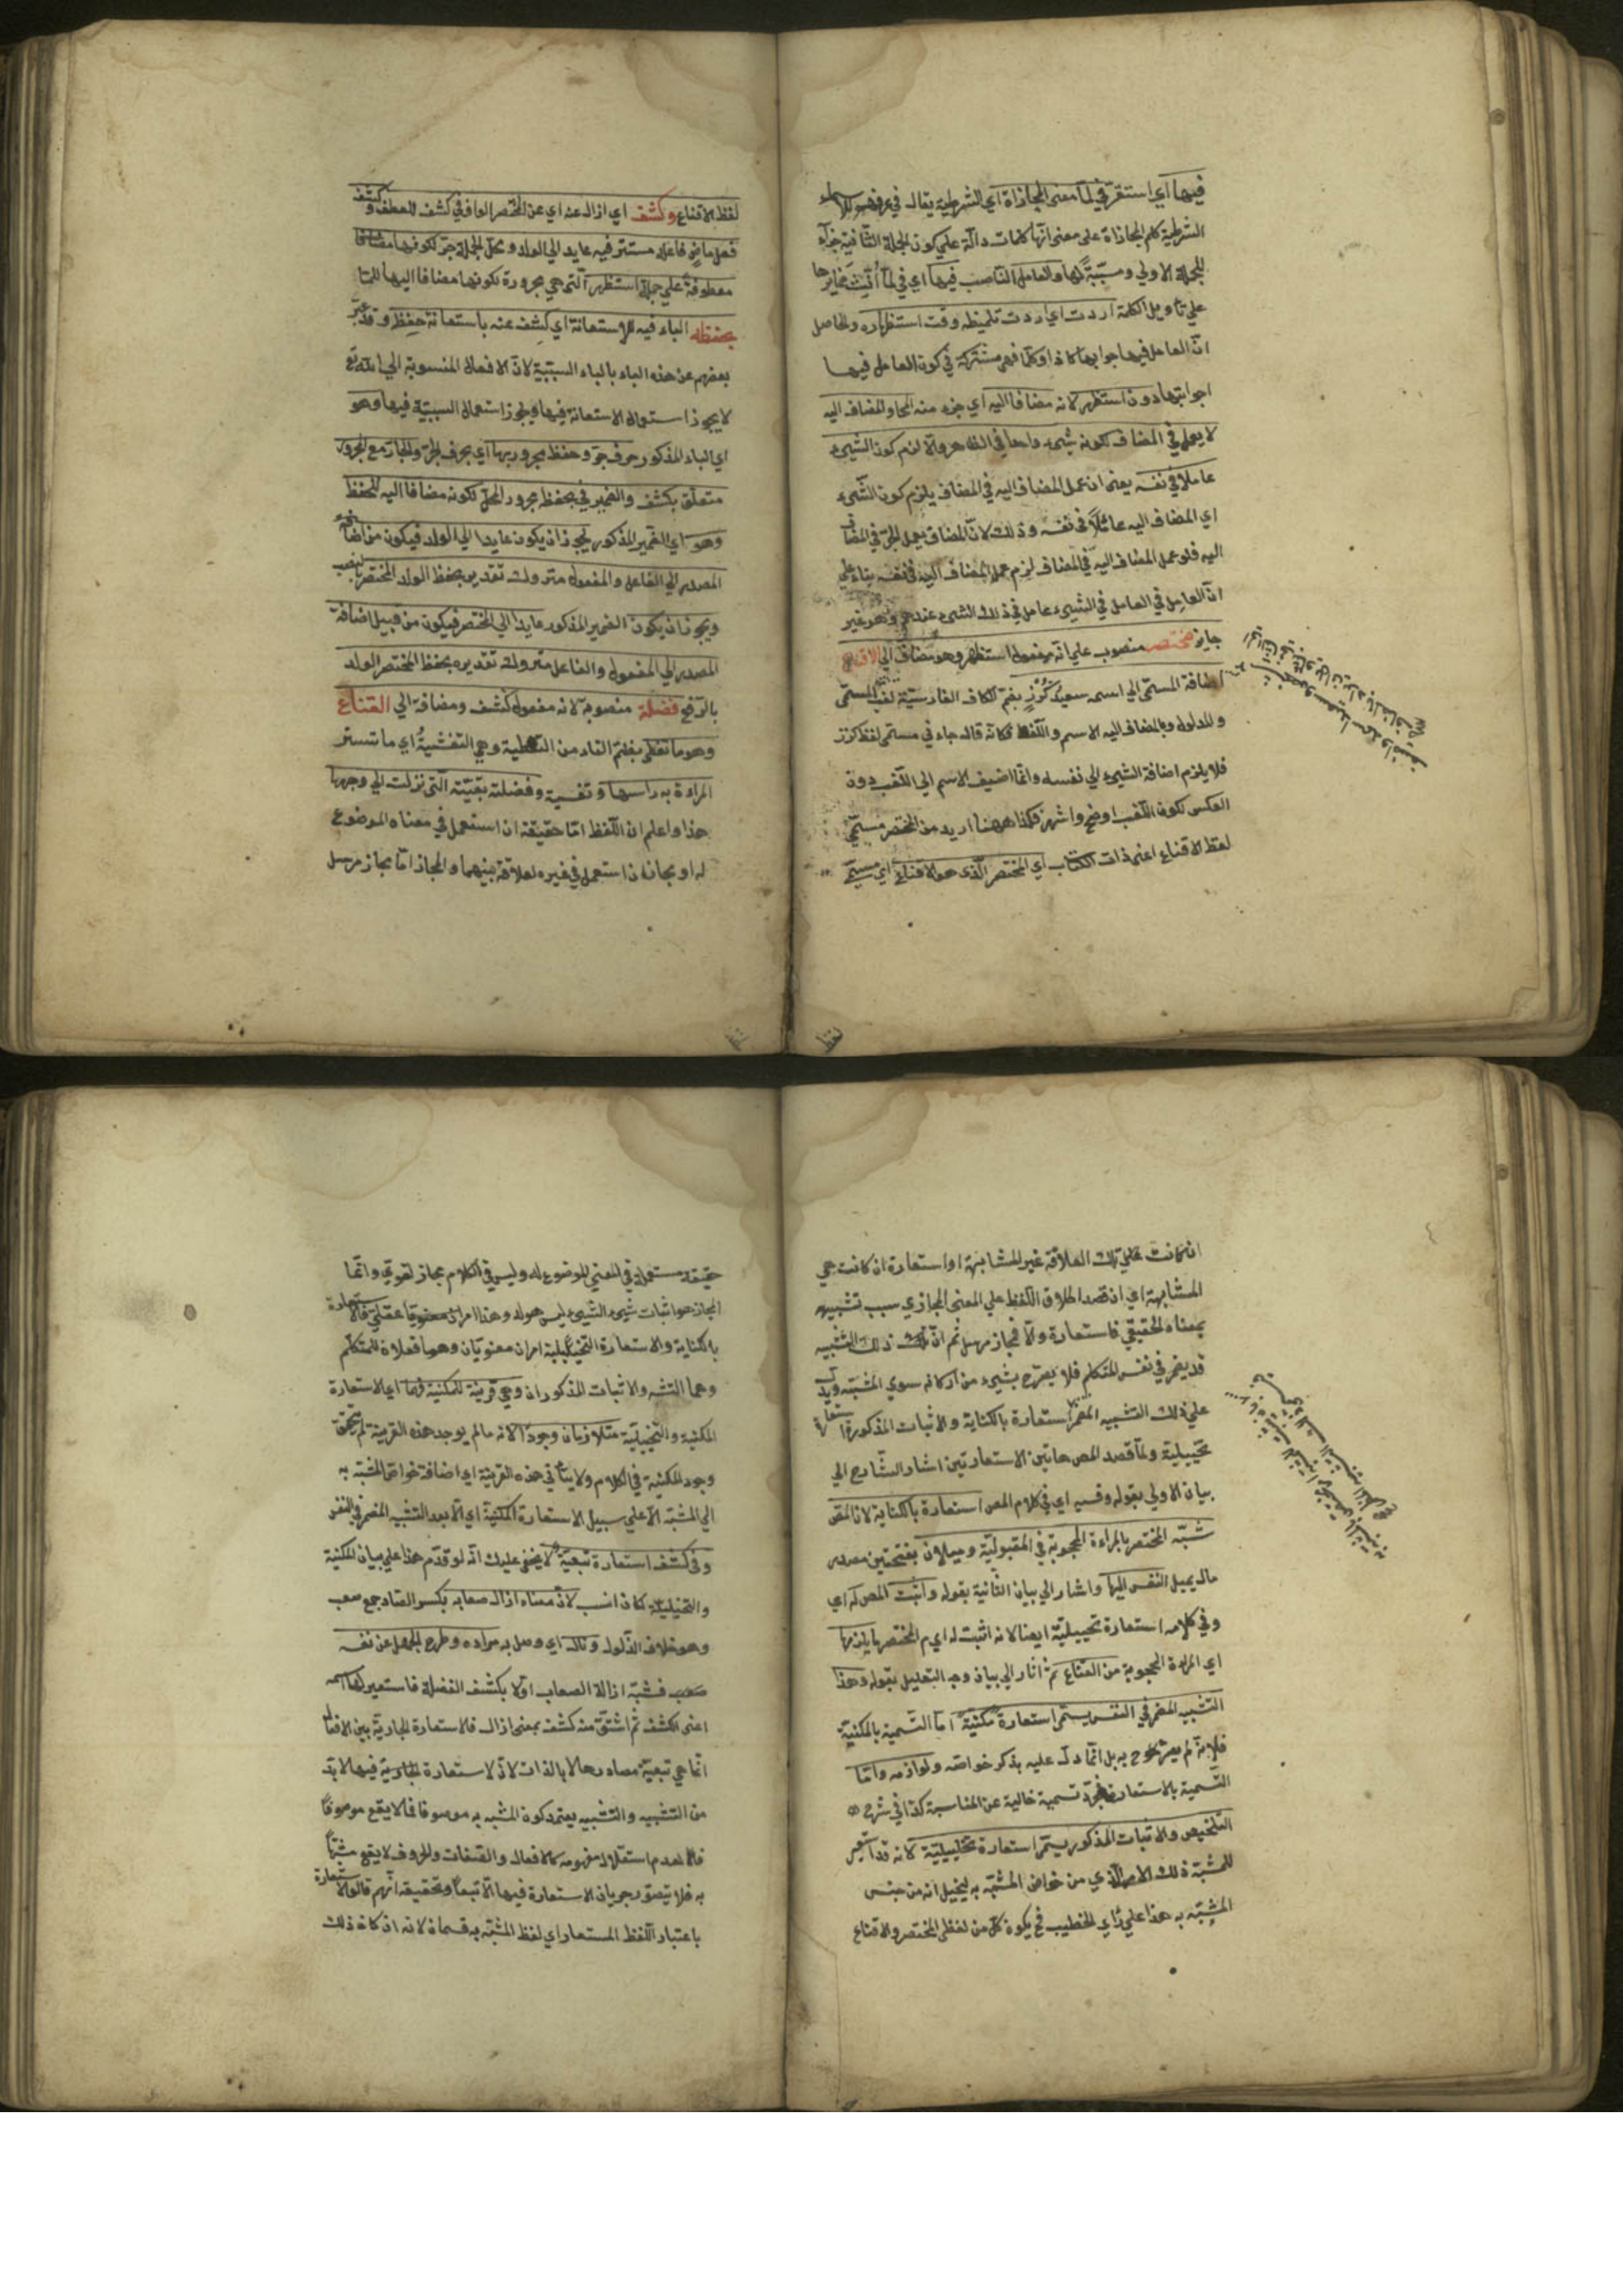 فيها اي استقر في لما معنى المجازاة اي الشرطية يقال في عرفهم للاسماء
الشرطية كلم المجازاة على معنى انها كلمات دالة علي كون الجملة الثانية جزاء
للجملة الاولي ومسببة لها والعامل الناصب فيها اي في لما
علي تاويل الكلمة اردت اي اردت تلميظه وقت استظهاره والحاصل
ان العامل فيها جوابها كاذا وكلما فهي مشتركة في كون العامل فيها
اجوابتها دون استظهر لانه مضافا اليه اي جزء منه المحل والمضاف اليه
لا يعمل في المضاف لكونه شيء واحدا في الظاهر والا لزم كون الشيء
عاملا في نفسه يعني ان عمل المضاف اليه في المضاف يلزم كون الشيء
اي المضاف اليه عاملا في نفسه وذلك لان المضاف يعمل الجر في المضاف
اليه فلو عمل المضاف اليه في المضاف لزم عمل المضاف اليه في نفسه بناء علي
ان العامل في العامل في الشيء عامل في ذلك الشيء عندهم وهو غير
جايز مختصر منصوب علي انه مفعول استظهر وهو مضاف الي الاقناع
اضافة المسمى الي اسمه سعيد كُرْزٍ بضم الكاف الفارسية لقب المسمى
والمدلول وبالمضاف اليه الاسم واللفظ فكانه قال جاء في مسمى لفظ كرز
فلا يلزم اضافة الشيء الي نفسه وانما اضيف الاسم الي اللقب دون
العكس لكون اللقب اوضح واشهر فكذا ههنا اريد من المختصر مسمى
لفظ الاقناع اعني ذات الكتاب اي المختصر الذي هو الاقناع اي مسمى
لفظ
لفظ الاقناع وكشف اي ازال عنه اي عن المختصر الواو في كشف للعطف وكشف
فعل ماض فاعله مستتر فيه عايد الي الولد ومحل الجملة جر لكونها
معطوفة علي جملة استظهر التي هي مجرورة لكونها مضافا اليها للما
بحفظه الباء فيه للاستعانة اي كشف عنه باستعانة حفظ وقد عبر
بعضهم عن هذه الباء بالباء السببية لان الافعال المنسوبة الي الله تع
لا يجوز استعمال الاستعانة فيها ويجوز استعمال السببية فيها وهو
اي الباء المذكور حرف جر وحفظ مجرور بها اي بحرف الجر والجار مع المجرور
متعلق بكشف والضمير في بحفظه مجرور المحل لكونه مضافا اليه للحفظ
وهو اي الضمير المذكور يجوز ان يكون عايدا الي الولد فيكون من اضافة
المصدر الي الفاعل والمفعول متروك تقديره بحفظ الولد المختصر بالنصب
ويجوز ان يكون الضمير المذكور عايدا الي المختصر فيكون من قبيل اضافة
المصدر الي المفعول والفاعل متروك تقديره بحفظ المختصر الولد
بالرفع فضلة منصوبة لانه مفعول كشف ومضافة الي القناع
وهو ما تغطى بضم التاء من التغطية وهي التغشية اي ما تستر
المراءة به راسها وتغشيه وفضلته بقيته التي نزلت الي وجهها
هذا واعلم ان اللفظ اما حقيقة ان استعمل في معناه الموضوع
له او مجاز ان استعمل في غيره لعلاقة بينهما والمجاز اما مجاز مرسل
ان كانت تلك العلاقة غير المشابهة او استعارة ان كانت هي
المشابهة اي ان قصد اطلاق اللفظ علي المعنى المجازي سبب تشبيهه
بمعناه الحقيقي فاستعارة والا فمجاز مرسل ثم ان ذلك التشبيه
قد يضمر في نفس المتكلم فلا يصرح بشيء من اركانه سوي المشبه ويدل
علي ذلك التشبيه المضمر استعارة بالكناية والاثبات المذكور استعارة
تخييلية ولما قصد المص هاتين الاستعارتين اشار الشارح الي
بيان الاولي بقوله وفيه اي في كلام المص استعارة بالكناية لان المص
شبه المختصر بالمراءة المحجوبة في المقبولية وميلان بفتحتين مصدر
مال يميل النفس اليها واشار الي بيان الثانية بقوله واثبت المص له اي
وفي كلامه استعارة تخييلية ايضا لانه اثبت له اي م المختصر ما يلزمها
اي المراءة المحجوبة من القناع ثم اشار الي بيان وجه التعليل بقوله وهذا
التشبيه المضمر في النفس يسمى استعارة مكنية اما التسمية بالمكنية
فلانه لم يصرح به بل انما دل عليه بذكر خواصه ولوازمه واما
التسمية بالاستعارة فمجرد تسمية خالية عن المناسبة كذا في شرح
التلخيص والاثبات المذكور يسمى استعارة تخييلية لانه قد استعير
للمشبه ذلك الامر الذي من خواص المشبه به ليخيل انه من جنس
المشبه به هذا علي رأي الخطيب فح يكون كل من لفظي المختصر والاقناع
حقيقة مستعملة في المعني الموضوع له وليس في الكلام مجاز لغوي وانما
المجاز هو اثبات شيء لشيء ليس هو له وهذا امر عقلي فالاستعارة
بالكناية والاستعارة التخييلية امران معنويان وهما فعلان للمتكلم
وهما التشبه والاثبات المذكوران وهي قرينة للمكنية فهما اي الاستعارة
المكنية والتخييلية متلازمان وجودا لانه ما لم يوجد هذه القرينة لم يتحقق
وجود المكنية في الكلام ولا يتأتى هذه القرينة اي اضافة خواص المشبه به
الي المشبه الا علي سبيل الاستعارة المكنية اي الا بعد التشبيه المضمر في النفس
وفي كشف استعارة تبعية لا يخفي عليك انه لو قدم هذا علي بيان المكنية
والتخييلية كان انسب لان معناه ازال صعابه بكسر الصاد جمع صعب
وهو خلاف الذلول ونال اي وصل به مراده وطرح الجهل عن نفسه
فشبه ازالة الصعاب اولا بكشف الفضلة فاستعير لها اسمه
اعني الكشف ثم اشتق منه كشف بمعنى ازال فالاستعارة الجارية بين الافعال
انما هي تبعية مصادرها لا بالذات لان الاستعارة الجارية فيها لا بد
من التشبيه والتشبيه يعتمد كون المشبه به موصوفا فما لا يقع موصوفا
لعدم استقلال مفهومه كالافعال والصفات والحروف لا يقع مشبها
به فلا يتصور جريان الاستعارة فيها الا تبعا وتحقيقه انهم قالوا الاستعارة
باعتبار اللفظ المستعار اي لفظ المشبه به قسمان لانه ان كان ذلك